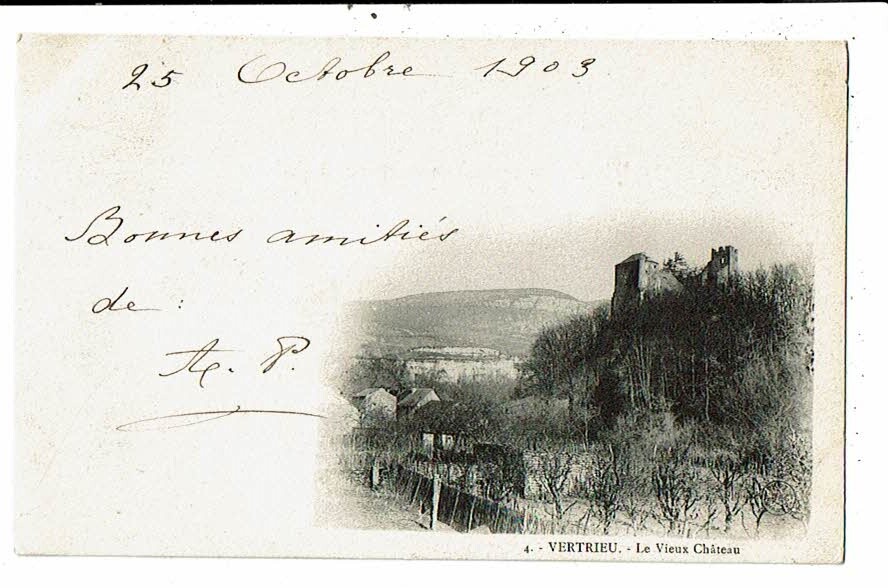 25 Octobre 1903
Bonnes amitiés
de :
P.
4. - VERTRIEU. - Le Vieux Château